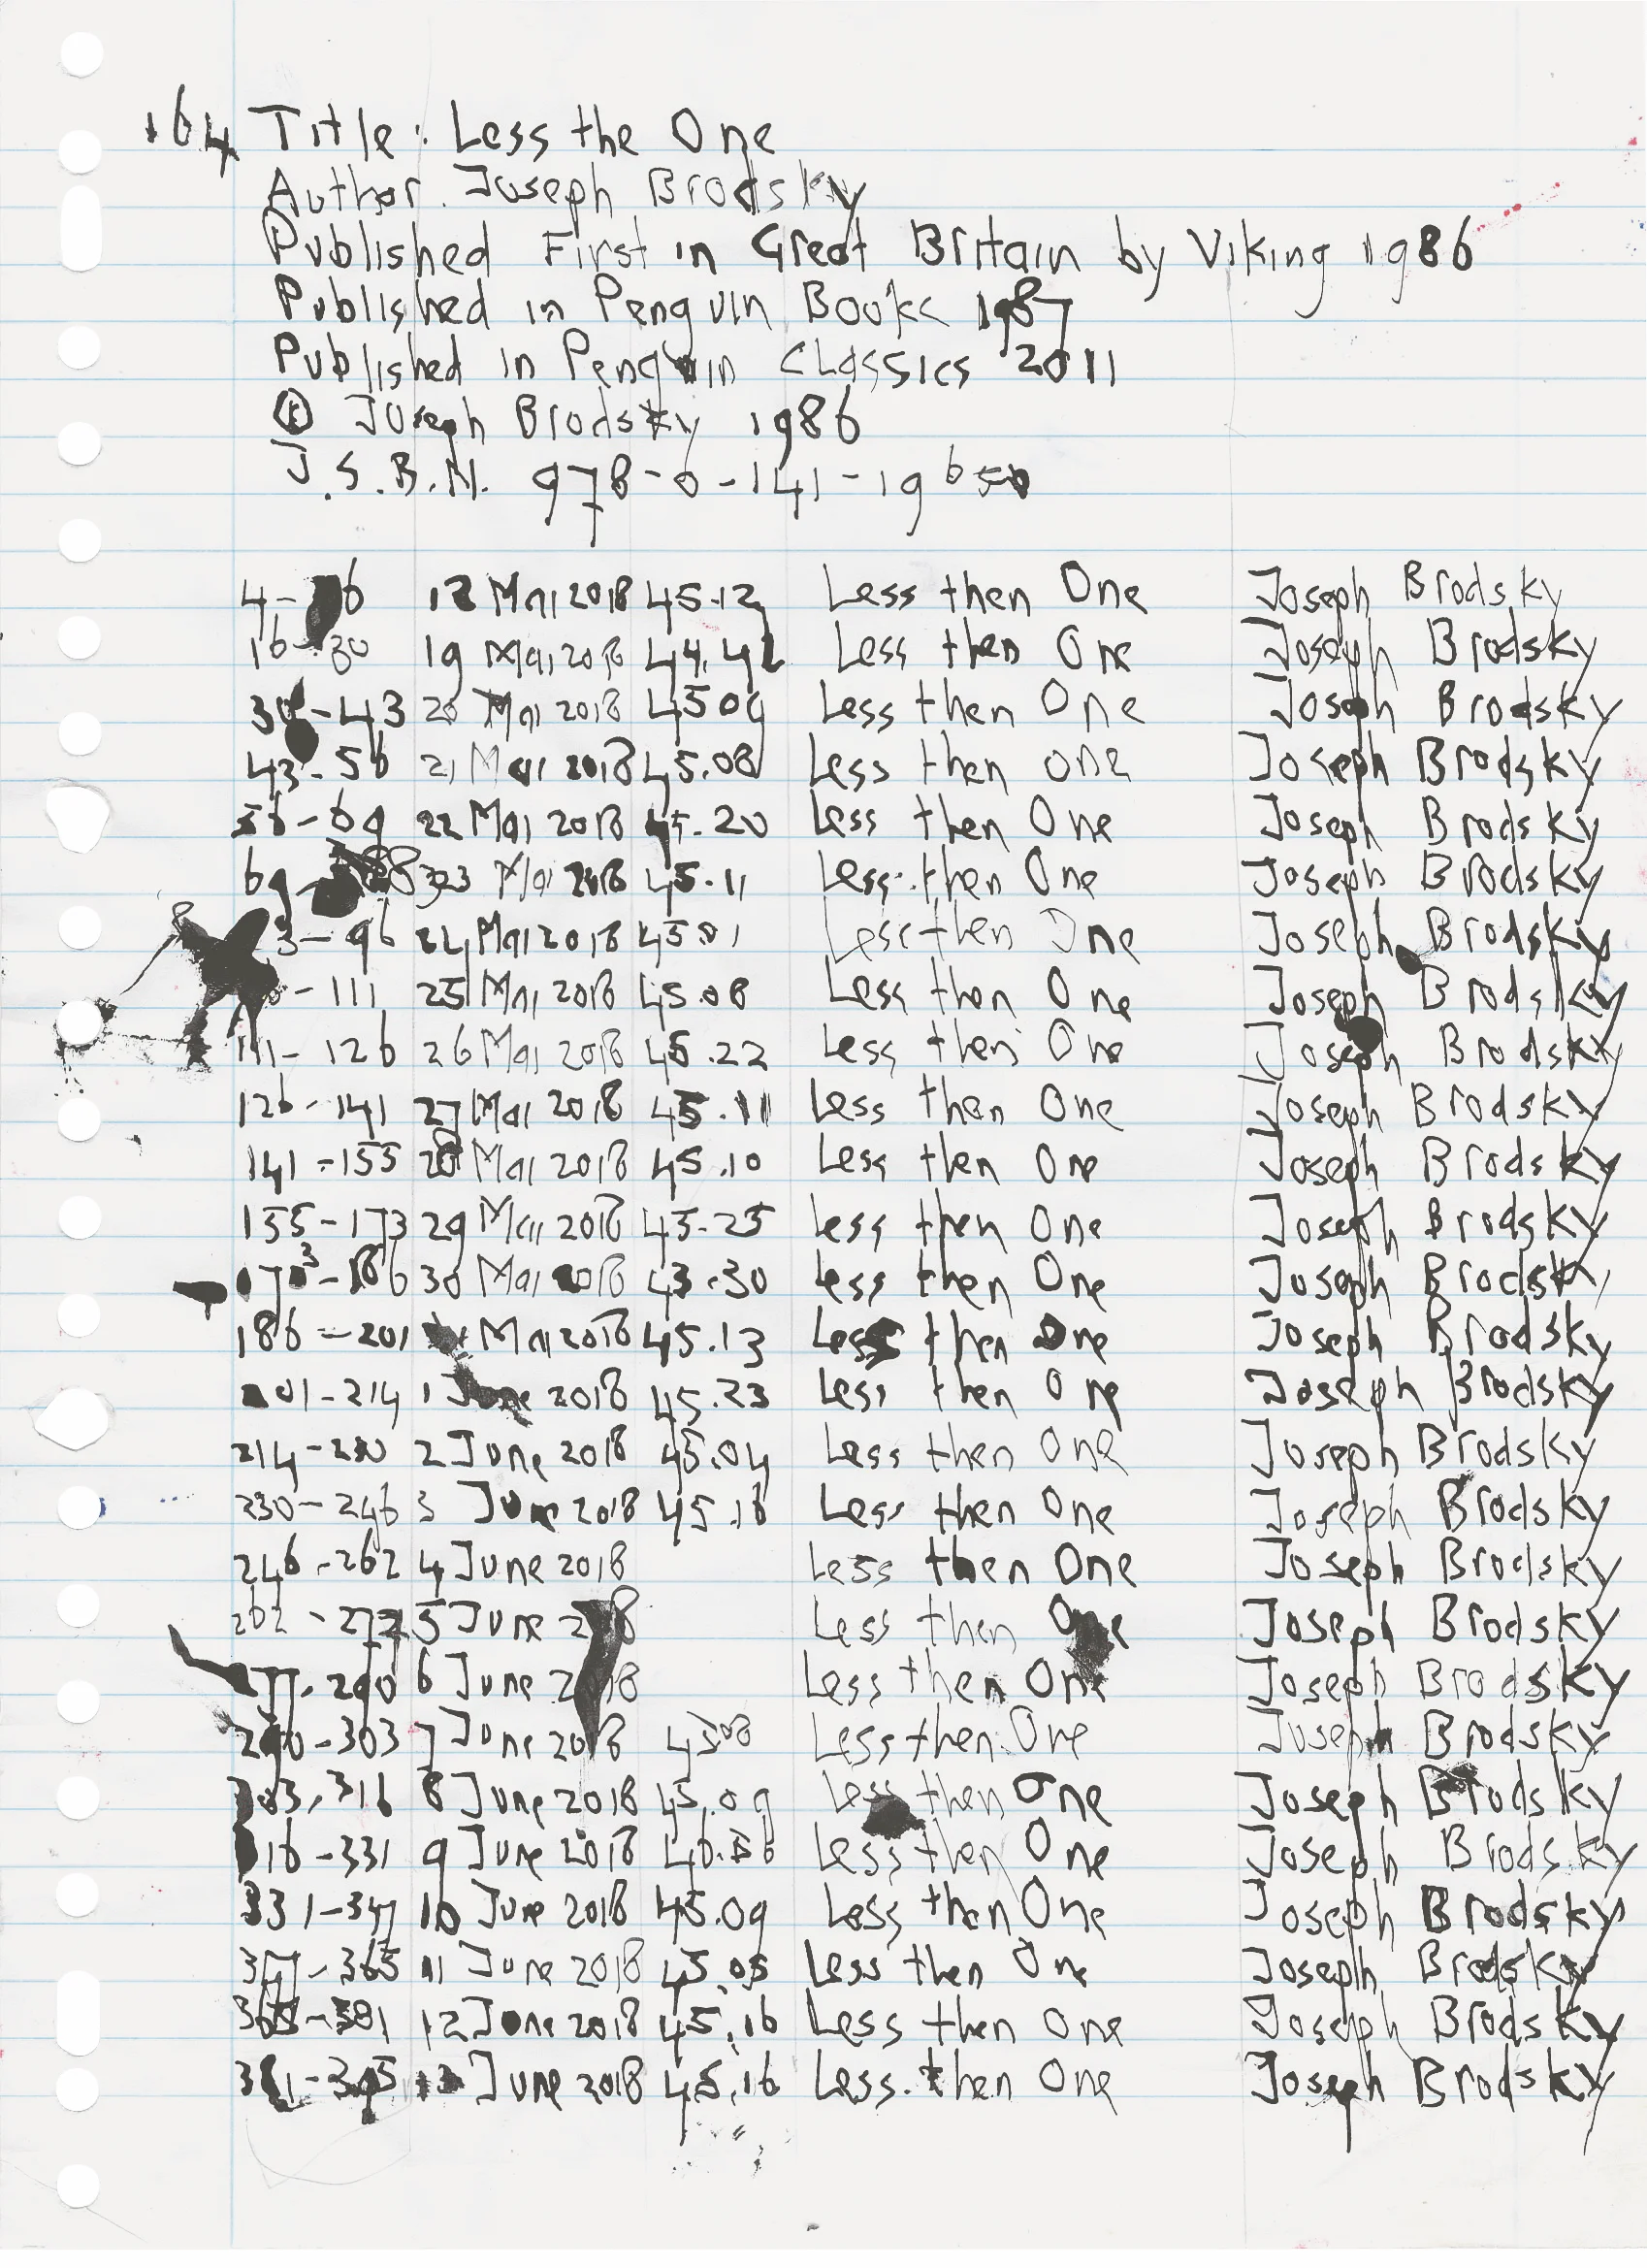 164 Title: Less the One
Author. Joseph Brodsky
Published First in Great Britain by Viking 1986
Published in Penguin Books 1987
Published in Penguin Classics 2011
© Joseph Brodsky 1986
I.S.B.N. 978-0-141-19650
4-16 12 Mai 2018 45.12 Less then One Joseph Brodsky
16-30 19 Mai 2018 44.42 Less then One Joseph Brodsky
30-43 20 Mai 2018 45.09 Less then One Joseph Brodsky
43-56 21 Mai 2018 45.08 Less then One Joseph Brodsky
56-69 22 Mai 2018 45.20 Less then One Joseph Brodsky
69- 23 Mai 2018 45.11 Less then One Joseph Brodsky
3-96 24 Mai 2018 45.01 Less then One Joseph Brodsky
-111 25 Mai 2018 45.08 Less then One Joseph Brodsky
111-126 26 Mai 2018 45.22 Less then One Joseph Brodsky
126-141 27 Mai 2018 45.11 Less then One Joseph Brodsky
141-155 28 Mai 2018 45.10 Less then One Joseph Brodsky
155-173 29 Mai 2018 45.25 Less then One Joseph Brodsky
173-186 30 Mai 2018 43.30 Less then One Joseph Brodsky
186-201 Mai 2018 45.13 Less then One Joseph Brodsky
201-214 1 June 2018 45.23 Less then One Joseph Brodsky
214-230 2 June 2018 45.04 Less then One Joseph Brodsky
230-246 3 June 2018 45.16 Less then One Joseph Brodsky
246-262 4 June 2018 Less then One Joseph Brodsky
262-277 5 June 2018 Less then One Joseph Brodsky
277-290 6 June 2018 Less then One Joseph Brodsky
290-303 7 June 2018 45.08 Less then One Joseph Brodsky
303-316 8 June 2018 45.09 Less then One Joseph Brodsky
316-331 9 June 2018 Less then One Joseph Brodsky
331-347 10 June 2018 45.09 Less then One Joseph Brodsky
347-365 11 June 2018 45.05 Less then One Joseph Brodsky
365-381 12 June 2018 45.16 Less then One Joseph Brodsky
381-395 13 June 2018 45.16 Less then One Joseph Brodsky